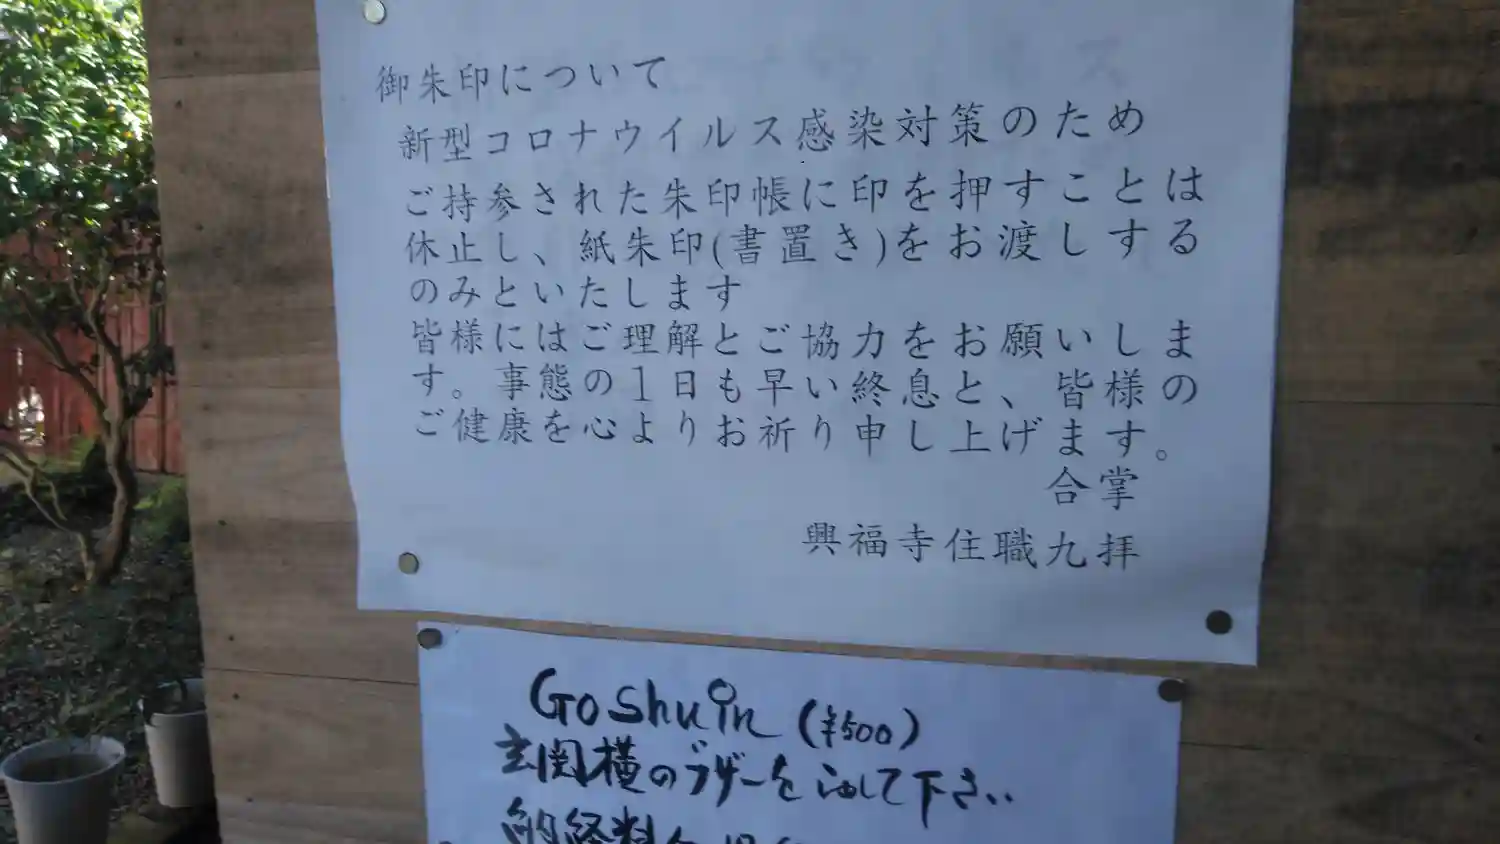 御朱印について
新型コロナウイルス感染対策のため
ご持参された朱印帳に印を押すことは
休止し、紙朱印(書置き)をお渡しする
のみといたします
皆様にはご理解とご協力をお願いしま
す。事態の１日も早い終息と、皆様の
ご健康を心よりお祈り申し上げます。
合掌
興福寺住職九拝
Goshuin (¥500)
玄関横のブザーを押して下さい
納経料